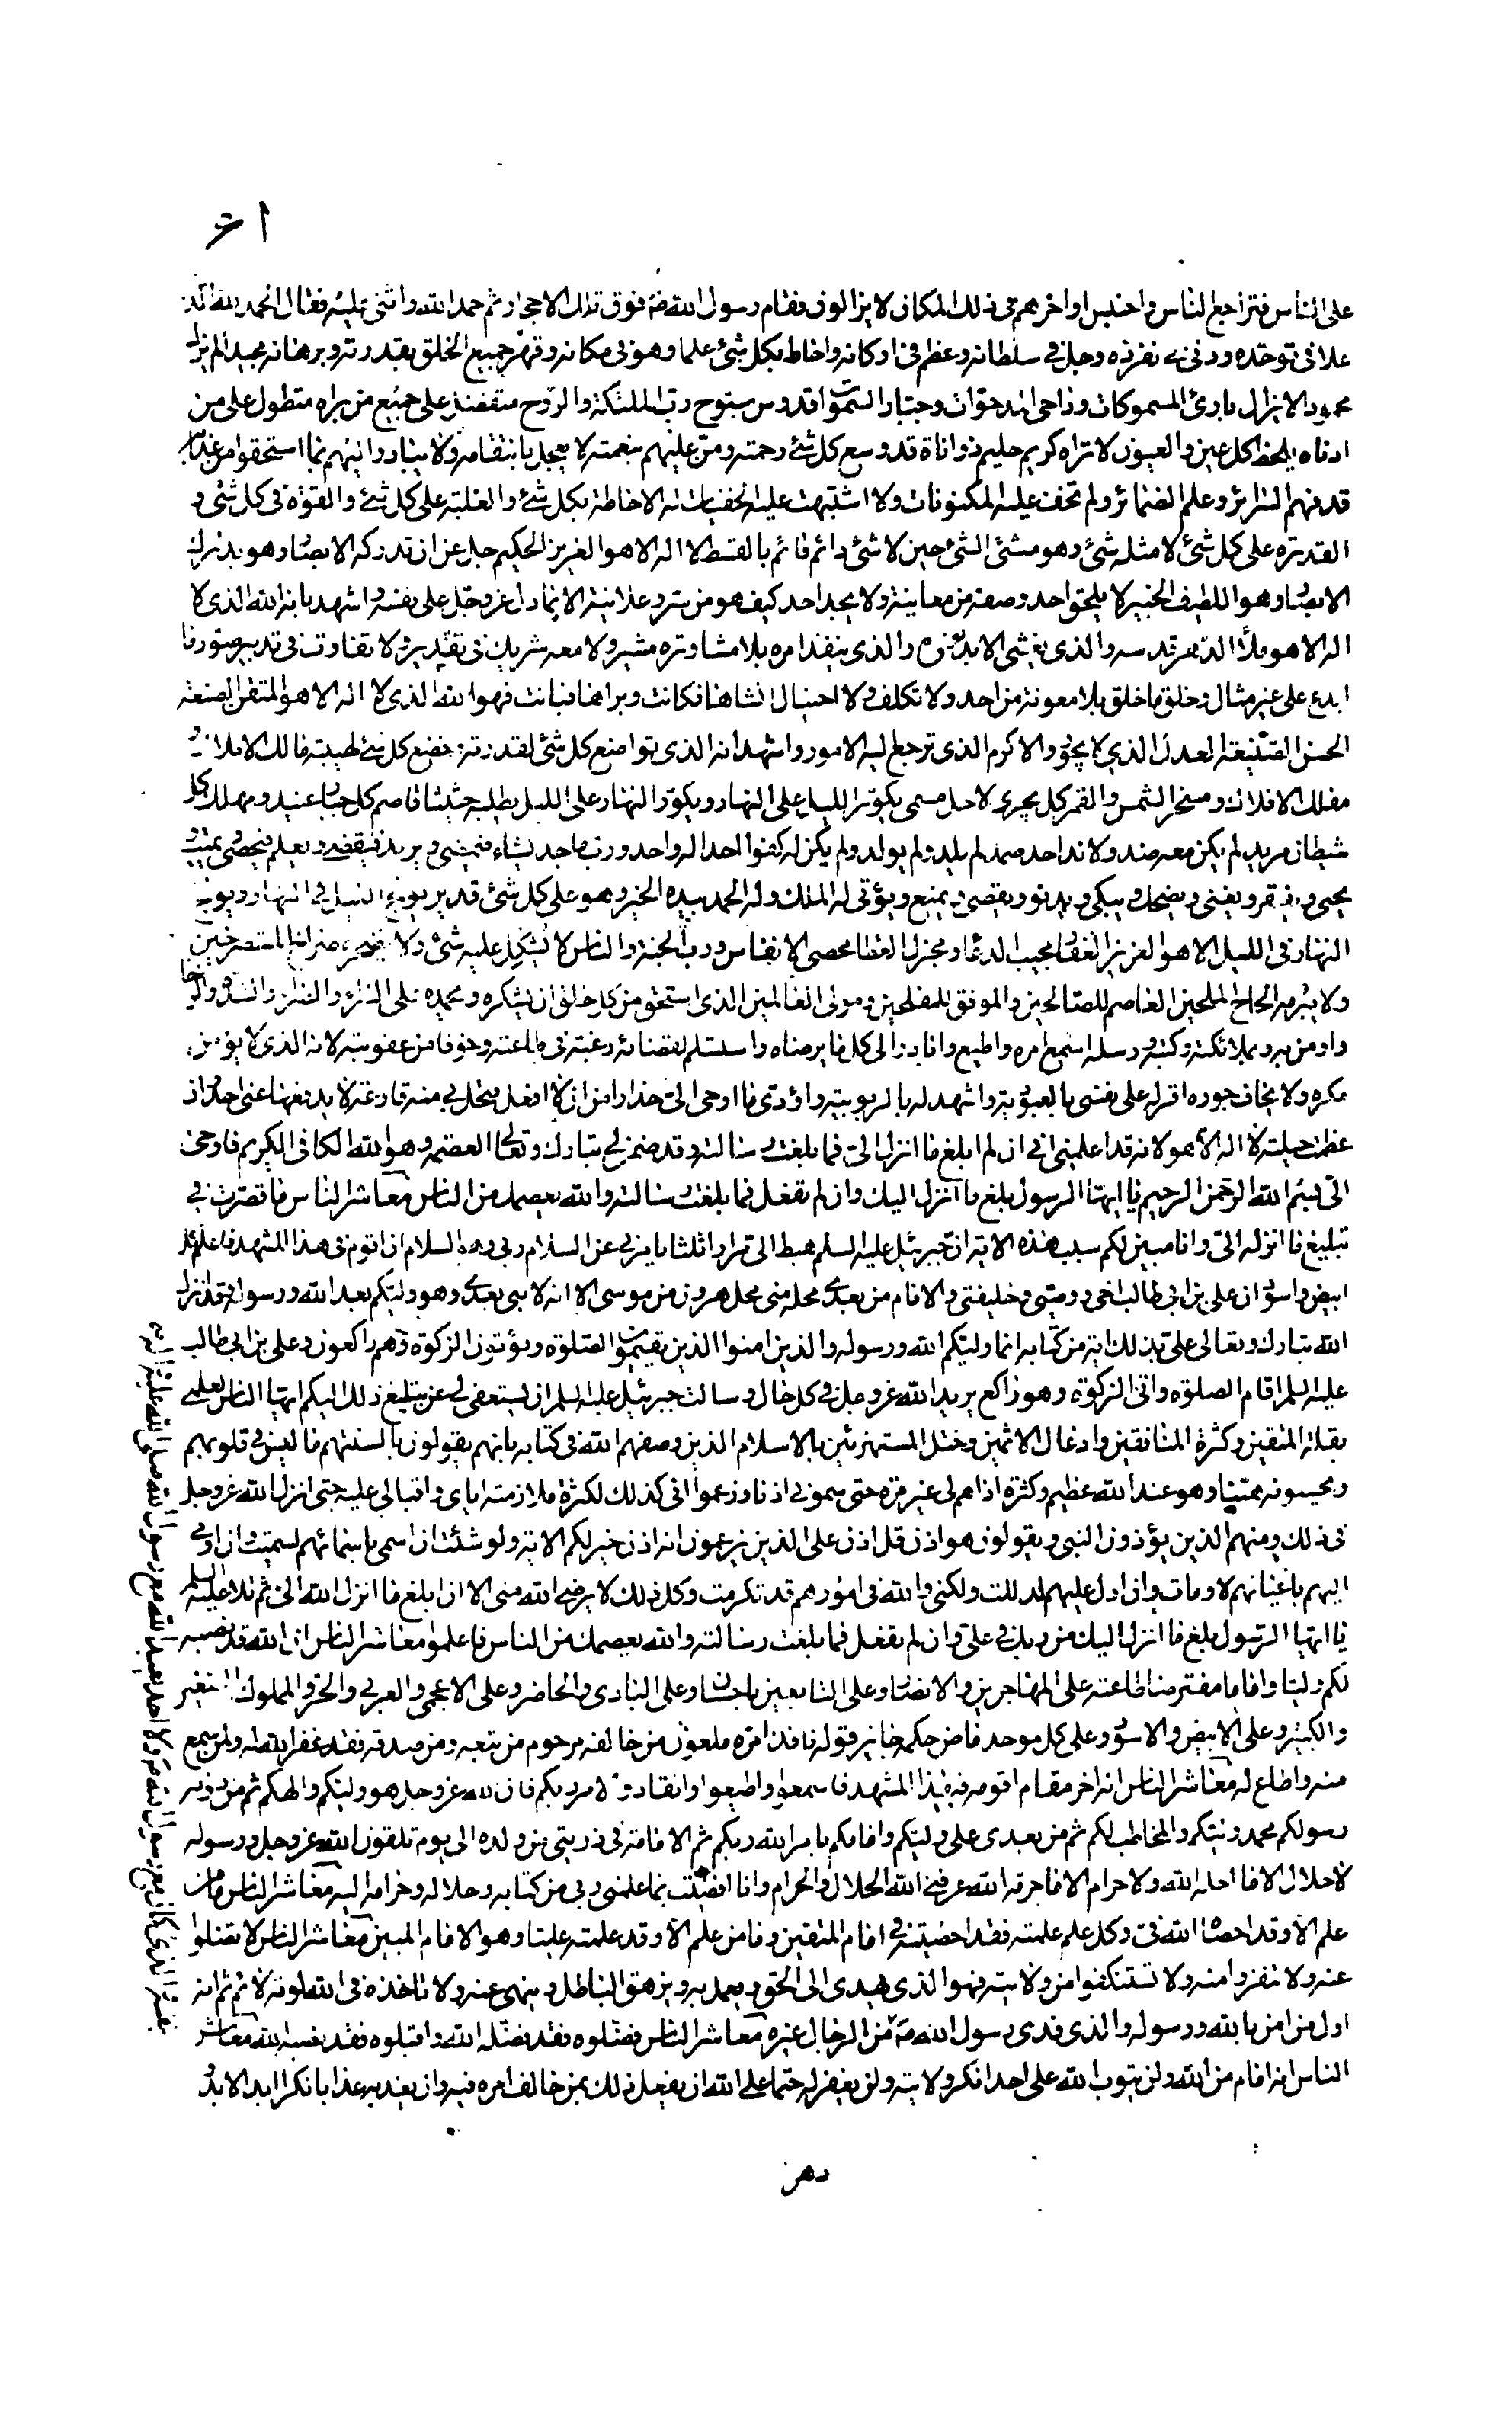 على الناس فتراجع الناس واحتبس اواخرهم فى ذلك المكان لا يزالون فقام رسول الله ص فوق تلك الاحجار ثم حمد الله واثنى عليه فقال الحمد لله الذى
علا فى توحده ودنى فى تفرده وجل فى سلطانه وعظم فى اركانه واحاط بكل شئ علما وهو فى مكانه وقهر جميع الخلق بقدرته وبرهانه مجيدا لم يزل
محمودا لا يزال بارئ المسموكات وداحى المدحوات وجبار السموات قدوس سبوح رب الملئكة والروح متفضل على جميع من براه متطول على من
ادناه يلحظ كل عين والعيون لا تراه كريم حليم ذو اناة قد وسع كل شئ رحمته ومن عليهم بنعمته لا يعجل بانتقامه ولا يبادر اليهم بما استحقوا من عذابه
قد فهم السرائر وعلم الضمائر ولم تخف عليه المكنونات ولا اشتبهت عليه الخفيات له الاحاطة بكل شئ والغلبة على كل شئ والقوة فى كل شئ و
القدرة على كل شئ لا مثله شئ وهو منشئ الشئ حين لا شئ دائم قائم بالقسط لا اله الا هو العزيز الحكيم جل عن ان تدركه الابصار وهو يدرك
الابصار وهو اللطيف الخبير لا يلحق احد وصفه من معاينة ولا يجد احد كيف هو من سر وعلانية الا بما دل عز وجل على نفسه واشهد بانه الله الذى لا
اله الا هو ملأ الدهر قدسه والذى يغشى الابد نوره والذى ينفذ امره بلا مشاورة مشير ولا معه شريك فى تقديره ولا تفاوت فى تدبير صور ما
ابدع على غير مثال وخلق ما خلق بلا معونة من احد ولا تكلف ولا احتيال انشاها فكانت وبراها فبانت فهو الله الذى لا اله الا هو المتقن الصنعة
الحسن الصنيعة العدل الذى لا يجور والاكرم الذى ترجع اليه الامور واشهد انه الذى تواضع كل شئ لقدرته وخضع كل شئ لهيبته مالك الاملاك و
مفلك الافلاك ومسخر الشمس والقمر كل يجرى لاجل مسمى يكور الليل على النهار ويكور النهار على الليل يطلبه حثيثا قاصم كل جبار عنيد ومهلك كل
شيطان مريد لم يكن معه ضد ولا ند احد صمد لم يلد ولم يولد ولم يكن له كفوا احد اله واحد ورب ماجد يشاء فيمضى ويريد فيقضى ويعلم فيحصى ويميت و
يحيى ويفقر ويغنى ويضحك ويبكى ويدنو ويقصى ويمنع ويؤتى له الملك وله الحمد بيده الخير وهو على كل شئ قدير يولج الليل فى النهار ويولج
النهار فى الليل لا هو العزيز الغفار مجيب الدعا ومجزل العطا محصى الانفاس ورب الجنة والناس لا يشكل عليه شئ ولا يضجره صراخ المستصرخين
ولا يبرمه الحاح الملحين العاصم للصالحين والموفق للمفلحين ومولى العالمين الذى استحق من كل خلق ان يشكره ويحمده على السراء والضراء والشدة والرخا
واومن به وبملائكته وكتبه ورسله اسمع امره واطيع وابادر الى كل ما يرضاه واستسلم لقضائه رغبة فى طاعته وخوفا من عقوبته لانه الذى لا يؤمن
مكره ولا يخاف جوره اقر له على نفسى بالعبودية واشهد له بالربوبية واؤدى ما اوحى الى حذرا من ان لا افعل فتحل بى منه قارعة لا يدفعها عنى احد وان
عظمت حيلته لا اله الا هو لانه قد اعلمنى انى ان لم ابلغ ما انزل الى فما بلغت رسالته وقد ضمن لى تبارك وتعالى العصمة وهو الله الكافى الكريم فاوحى
الى بسم الله الرحمن الرحيم يا ايها الرسول بلغ ما انزل اليك وان لم تفعل فما بلغت رسالته والله يعصمك من الناس معاشر الناس ما قصرت فى
تبليغ ما انزله الى وانا مبين لكم سبب هذه الاية ان جبرئيل عليه السلم هبط الى مرارا ثلثا يامرنى عن السلام ربى وهو السلام ان اقوم فى هذا المشهد فاعلم كل
ابيض واسود ان على بن ابى طالب اخى ووصيى وخليفتى والامام من بعدى محله منى محل هرون من موسى الا انه لا نبى بعدى وهو وليكم بعد الله ورسوله وقد انزل
الله تبارك وتعالى على بذلك اية من كتابه انما وليكم الله ورسوله والذين امنوا الذين يقيمون الصلوة ويؤتون الزكوة وهم راكعون وعلى بن ابى طالب
عليه السلم اقام الصلوة واتى الزكوة وهو راكع يريد الله عز وجل فى كل حال وسالت جبرئيل عليه السلم ان يستعفى لى عن تبليغ ذلك اليكم ايها الناس لعلمى
بقلة المتقين وكثرة المنافقين وادغال الاثمين وختل المستهزئين بالاسلام الذين وصفهم الله فى كتابه بانهم يقولون بالسنتهم ما ليس فى قلوبهم
ويحسبونه هينا وهو عند الله عظيم وكثرة اذاهم لى غير مرة حتى سمونى اذنا وزعموا انى كذلك لكثرة ملازمته اياى واقبالى عليه حتى انزل الله عز وجل
فى ذلك ومنهم الذين يؤذون النبى ويقولون هو اذن قل اذن على الذين يزعمون انه اذن خير لكم الاية ولو شئت ان اسمى باسمائهم لسميت وان اومى
اليهم باعيانهم لاومات وان ادل عليهم لدللت ولكنى والله فى امورهم قد تكرمت وكل ذلك لا يرضى الله منى الا ان ابلغ ما انزل الله الى ثم تلا عليه السلم
يا ايها الرسول بلغ ما انزل اليك من ربك فى على وان لم تفعل فما بلغت رسالته والله يعصمك من الناس فاعلموا معاشر الناس ان الله قد نصبه
لكم وليا واماما مفترضا طاعته على المهاجرين والانصار وعلى التابعين باحسان وعلى البادى والحاضر وعلى الاعجمى والعربى والحر والمملوك الصغير
والكبير وعلى الابيض والاسود وعلى كل موحد ماض حكمه جايز قوله نافذ امره ملعون من خالفه مرحوم من تبعه ومن صدقه فقد غفر الله له ولمن سمع
منه واطاع له معاشر الناس انه اخر مقام اقومه فى هذا المشهد فاسمعوا واطيعوا وانقادوا لامر ربكم فان الله عز وجل هو وليكم والهكم ثم من دونه
رسولكم محمد وليكم والمخاطب لكم ثم من بعدى على وليكم وامامكم بامر الله ربكم ثم الامامة فى ذريتى من ولده الى يوم تلقون الله عز وجل ورسوله
لا حلال الا ما احله الله ولا حرام الا ما حرمه الله عرفنى الله الحلال والحرام وانا افضيت بما علمنى ربى من كتابه وحلاله وحرامه اليه معاشر الناس ما من
علم الا وقد احصاه الله فى وكل علم علمته فقد احصيته فى امام المتقين وما من علم الا وقد علمته عليا وهو الامام المبين معاشر الناس لا تضلوا
عنه ولا تنفروا منه ولا تستنكفوا من ولايته فهو الذى يهدى الى الحق ويعمل به ويزهق الباطل وينهى عنه ولا تاخذه فى الله لومة لائم ثم انه
اول من امن بالله ورسوله والذى فدى رسول الله ص من الرجال غيره معاشر الناس فضلوه فقد فضله الله واقبلوه فقد نصبه الله معاشر
الناس انه امام من الله ولن يتوب الله على احد انكر ولايته ولن يغفر له حتما على الله ان يفعل ذلك بمن خالف امره فيه وان يعذبه عذابا نكرا ابد الابد